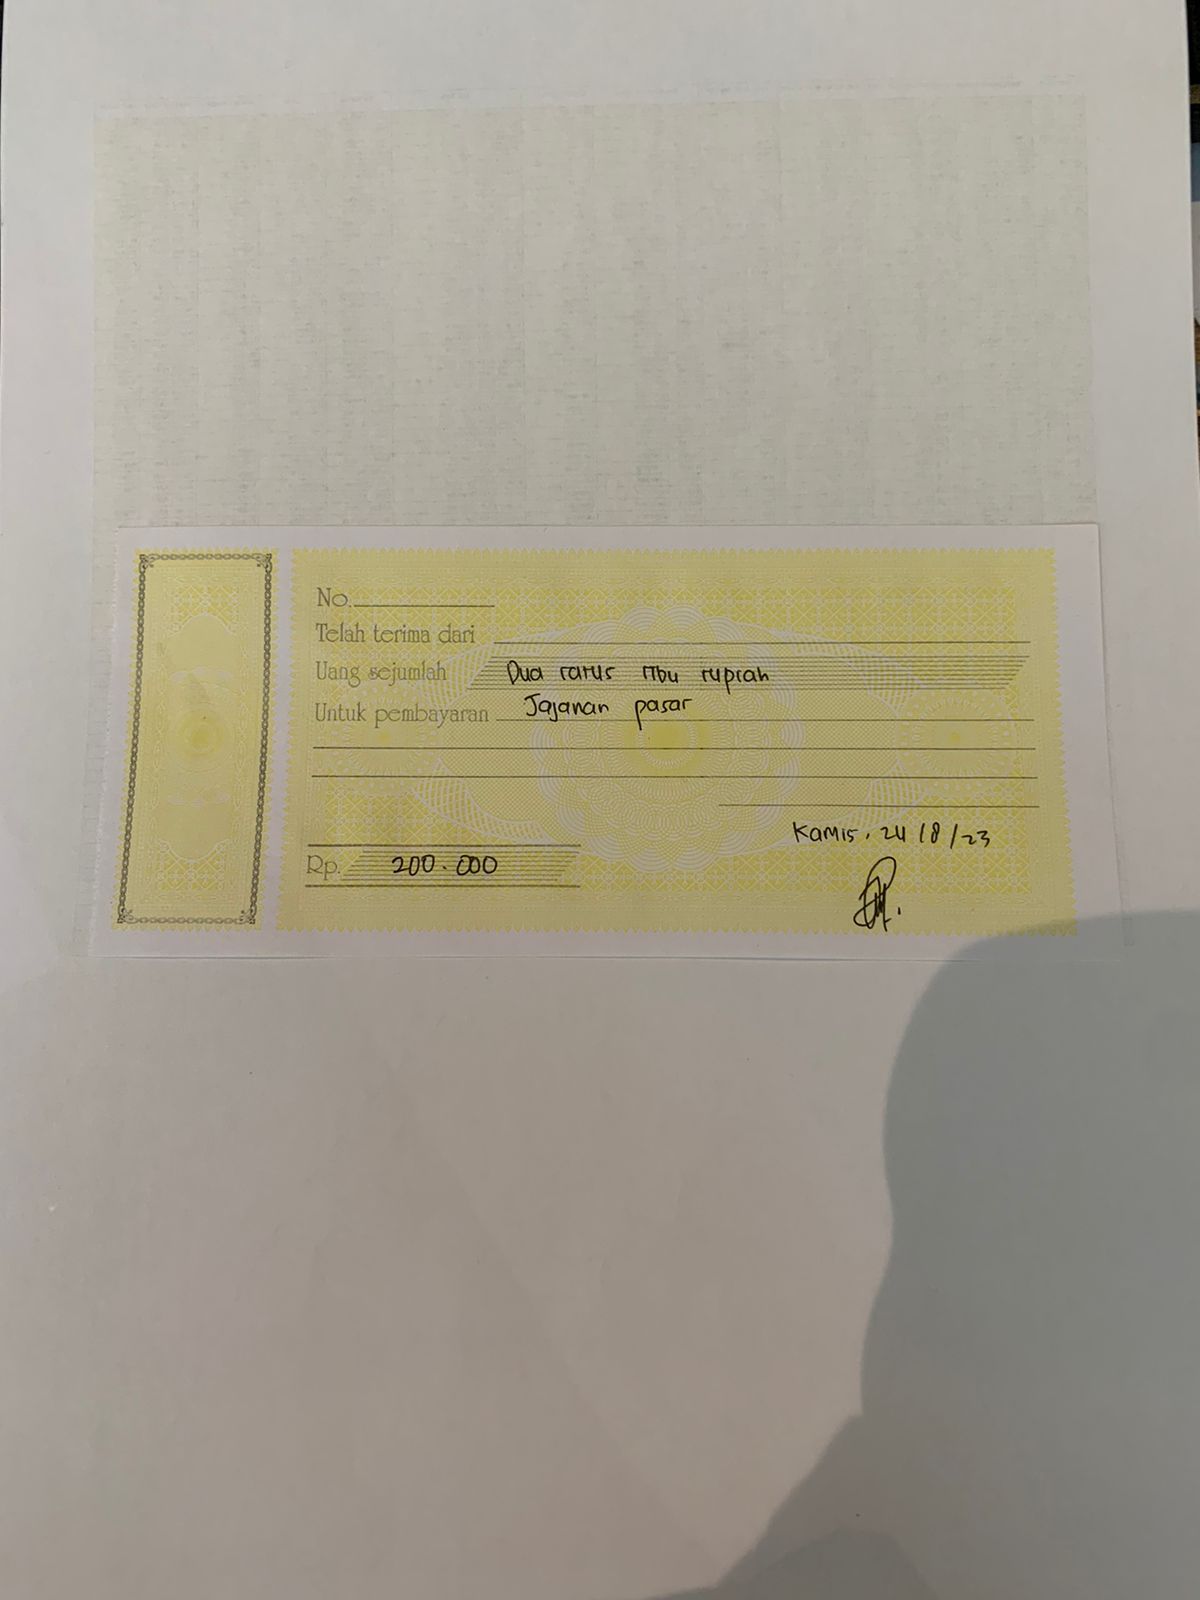 No.
Telah terima dari
Uang sejumlah Dua ratus ribu rupiah
Untuk pembayaran Jajanan pasar
Kamis, 24/8/23
Rp. 200.000